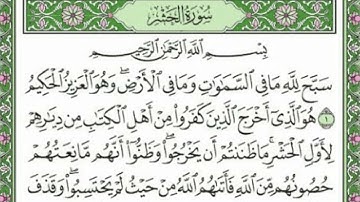 سُورَةُ الحَشْرِ
بِسْمِ اللَّهِ الرَّحْمَٰنِ الرَّحِيمِ
سَبَّحَ لِلَّهِ مَا فِي السَّمَاوَاتِ وَمَا فِي الْأَرْضِ ۖ وَهُوَ الْعَزِيزُ الْحَكِيمُ
١ هُوَ الَّذِي أَخْرَجَ الَّذِينَ كَفَرُوا مِنْ أَهْلِ الْكِتَابِ مِن دِيَارِهِمْ
لِأَوَّلِ الْحَشْرِ ۚ مَا ظَنَنتُمْ أَن يَخْرُجُوا ۖ وَظَنُّوا أَنَّهُم مَّانِعَتُهُمْ
حُصُونُهُم مِّنَ اللَّهِ فَأَتَاهُمُ اللَّهُ مِنْ حَيْثُ لَمْ يَحْتَسِبُوا ۖ وَقَذَفَ